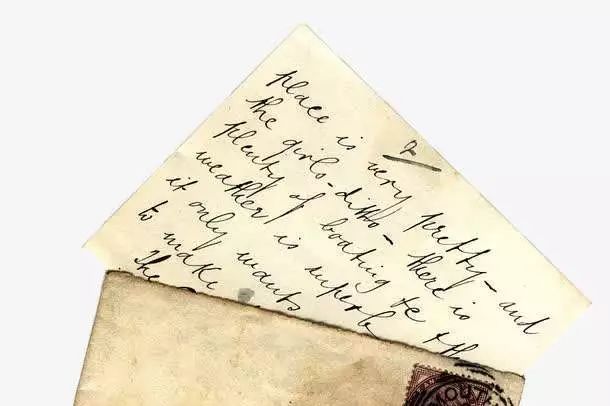 2
place is very pretty – and
the girls – ditto – there is
plenty of boating &c
weather is superb & th
it only wants
to make
The